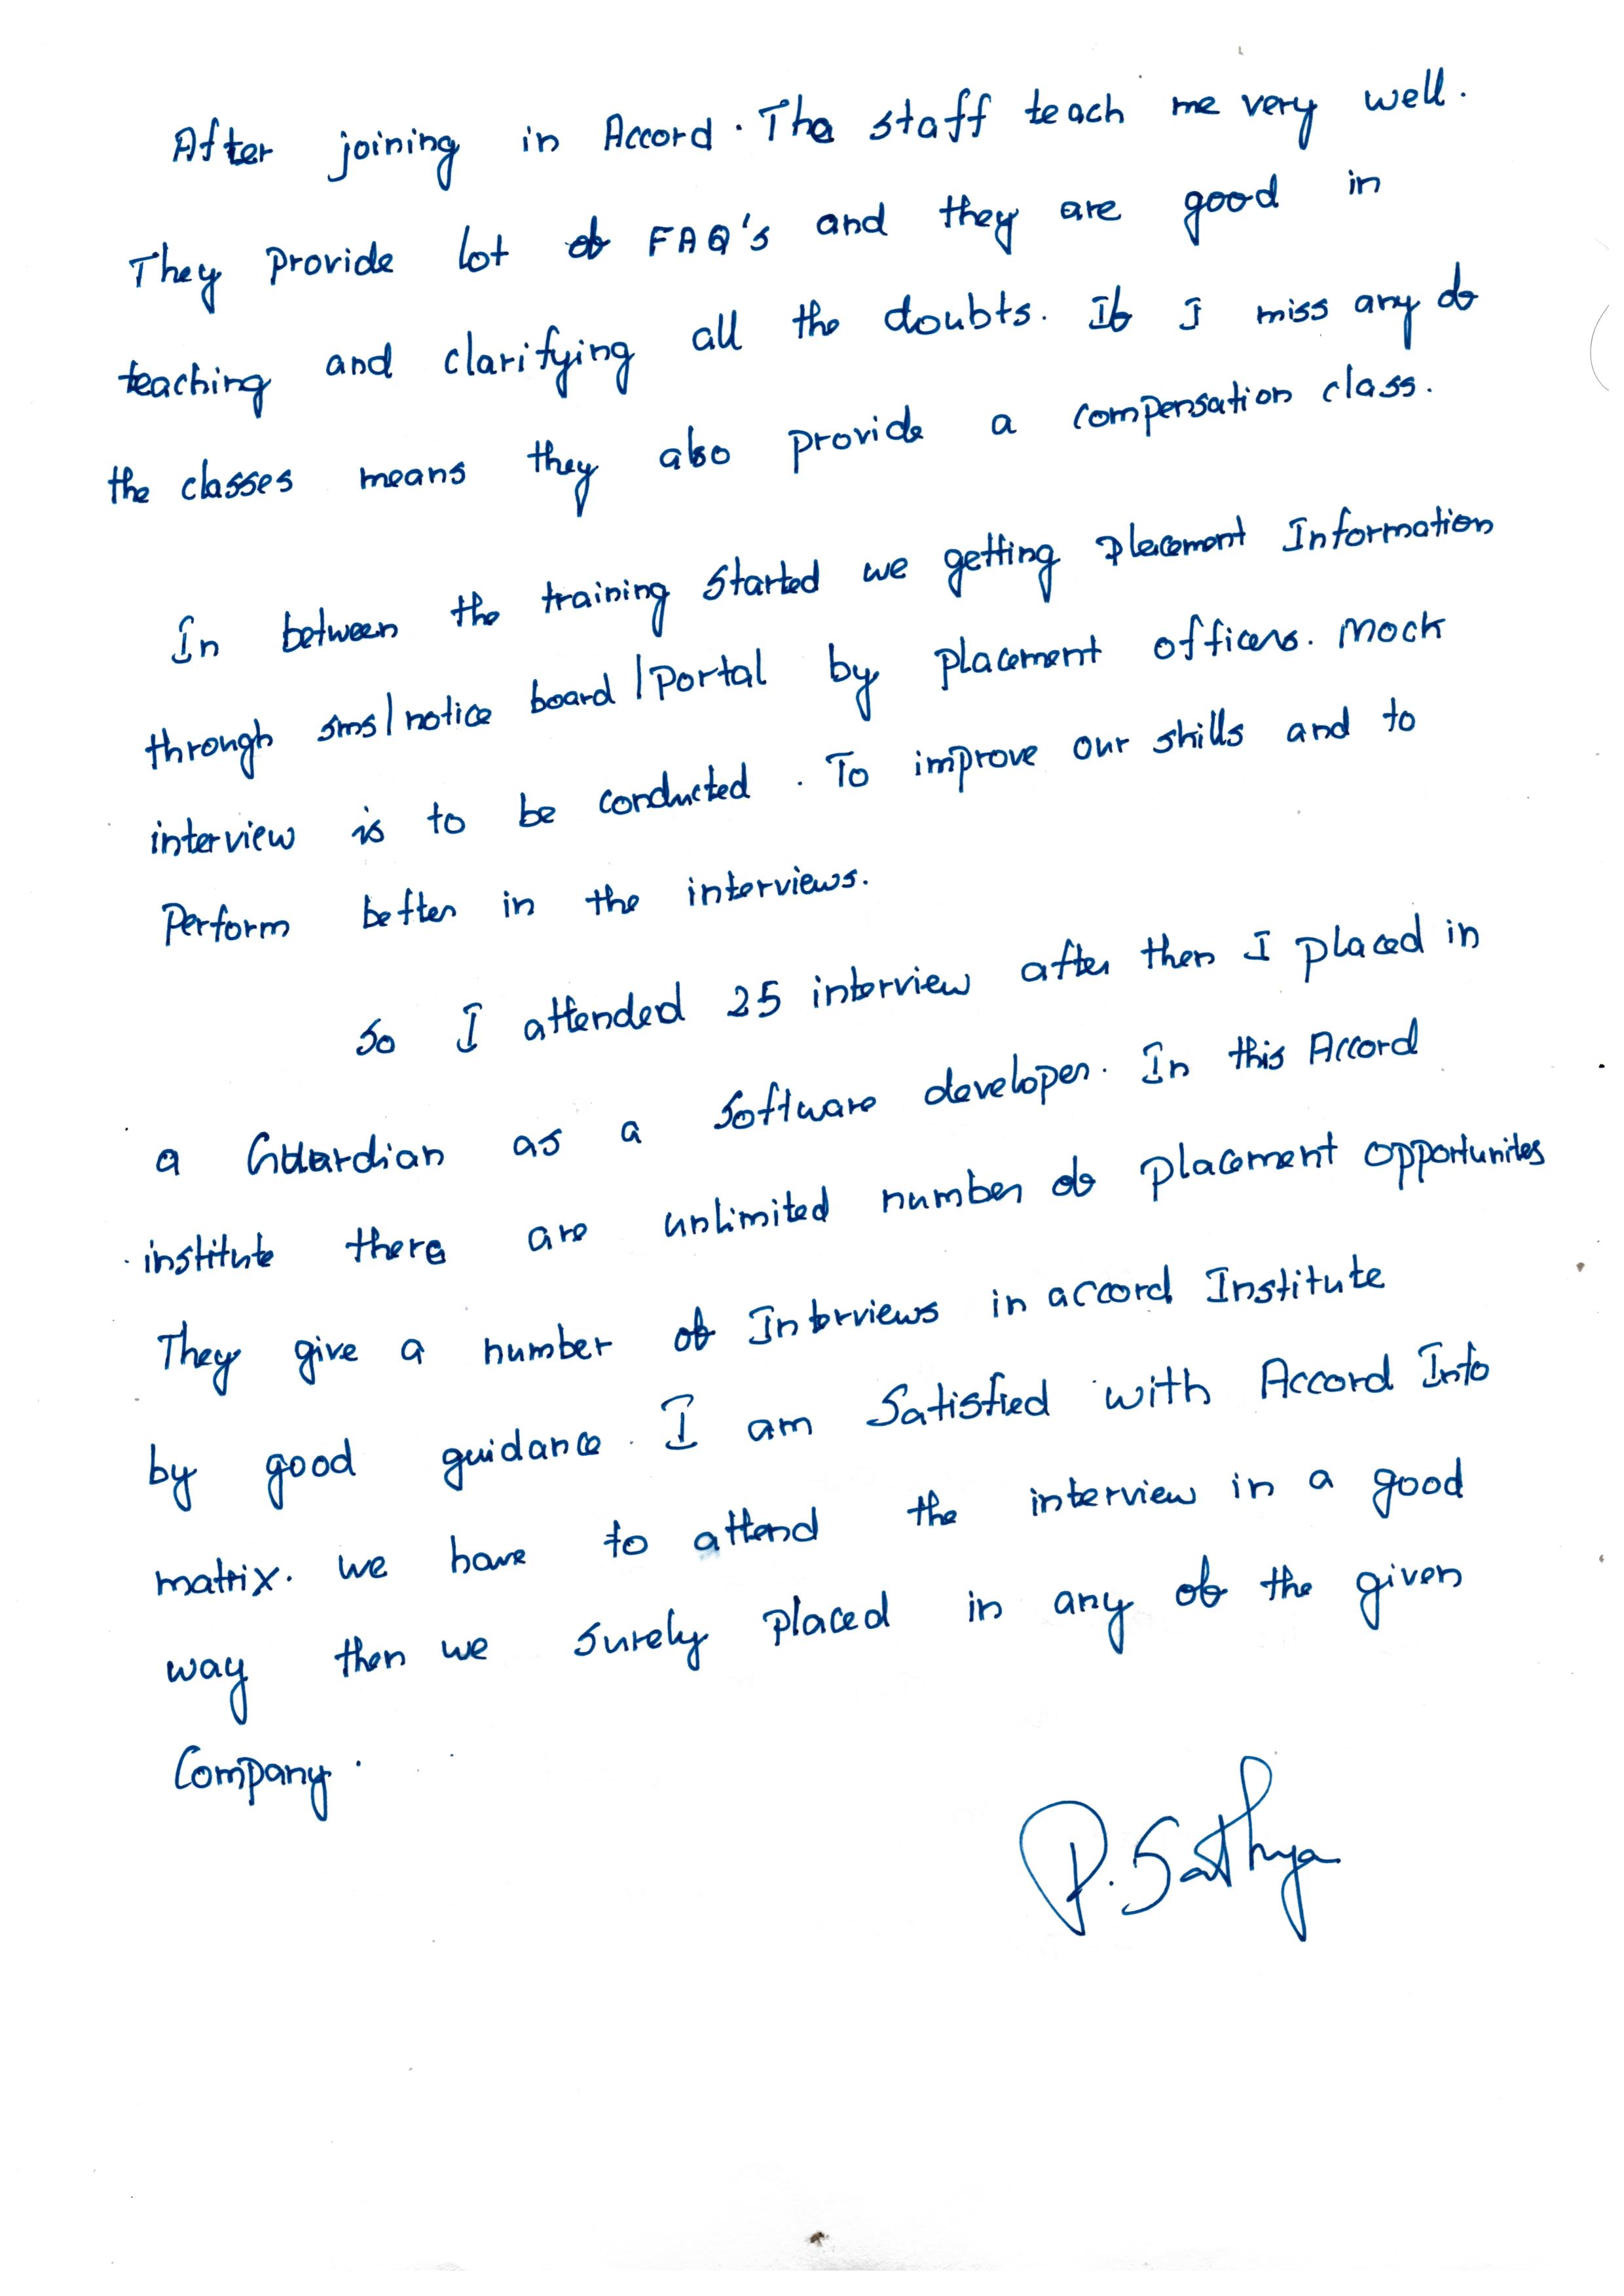 After joining in Accord. The staff teach me very well.
They Provide lot of FAQ's and they are good in
teaching and clarifying all the doubts. If I miss any of
the classes means they also provide a compensation class.
In between the training started we getting Placement Information
through sms/notice board/Portal by placement officers. Mock
interview is to be conducted. To improve our skills and to
Perform better in the interviews.
So I attended 25 interview after then I placed in
a Guardian as a Software developer. In this Accord
institute there are unlimited number of placement opportunites
They give a number of Interviews in accord Institute
by good guidance. I am Satisfied with Accord Info
matrix. we have to attend the interview in a good
way then we surely placed in any of the given
Company.
P. Sathya